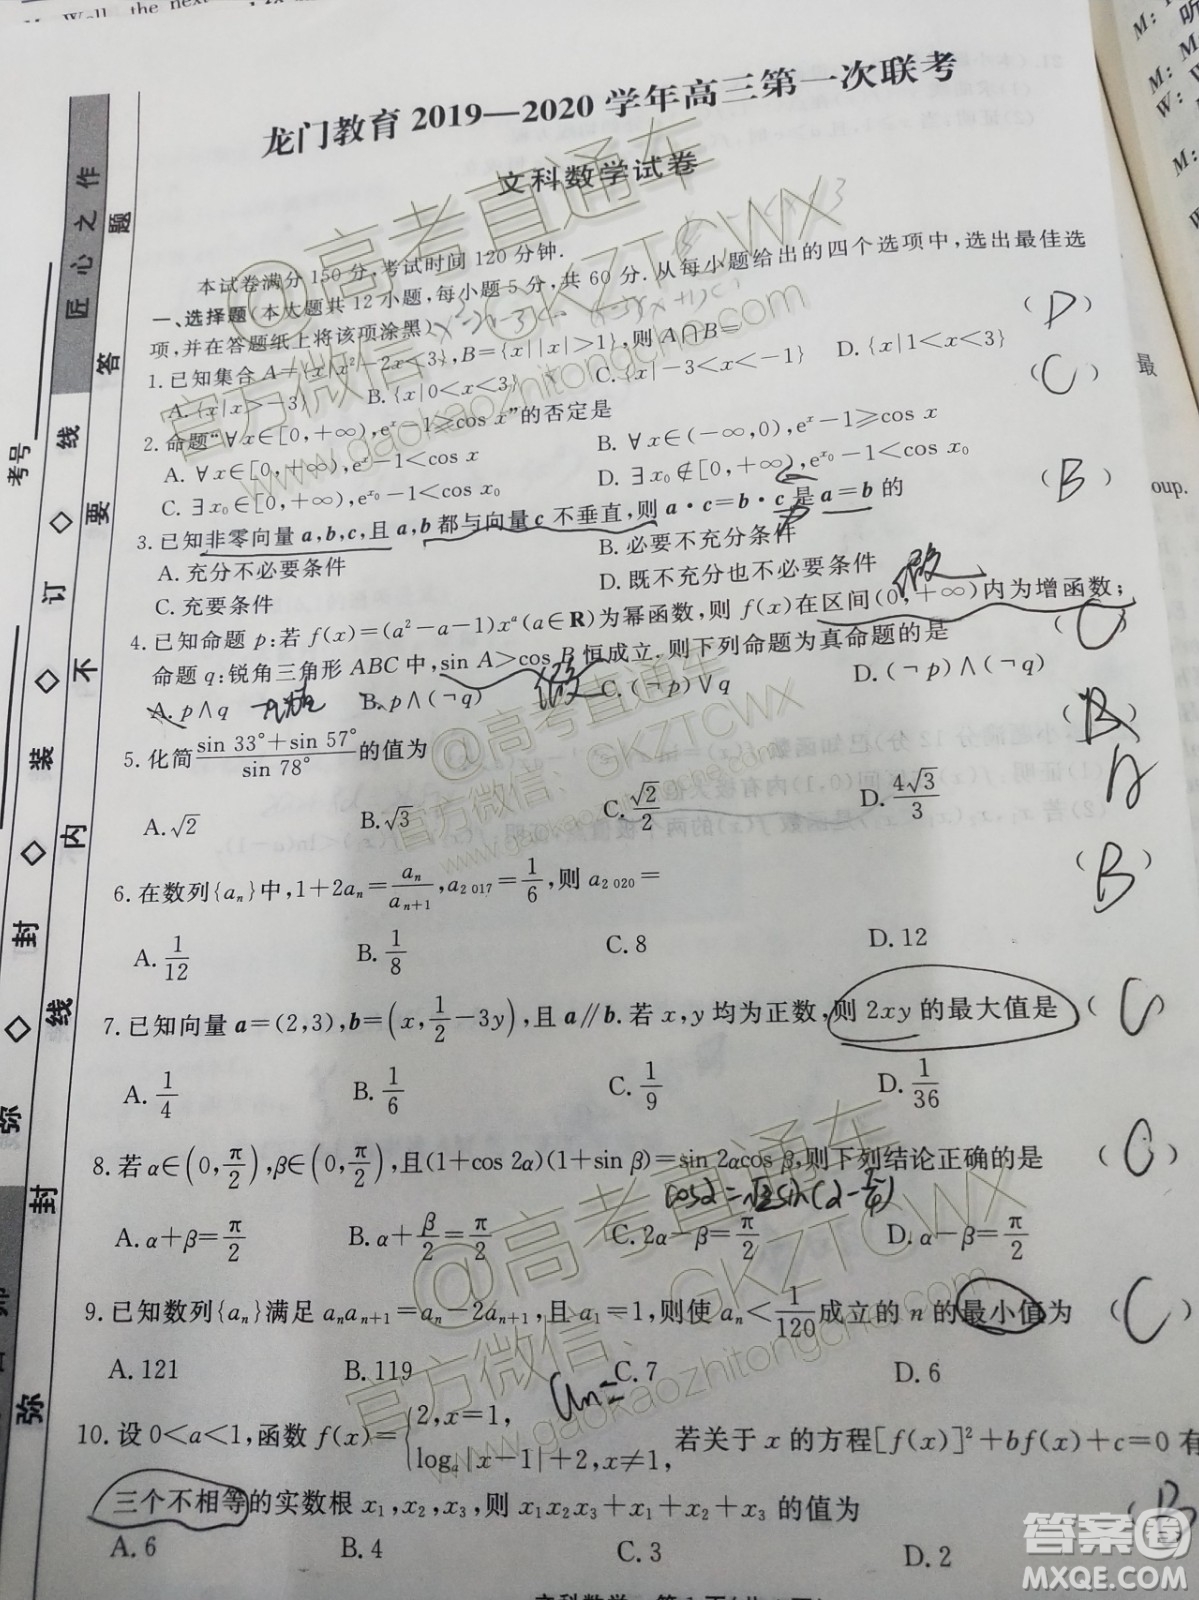 Well, the next
龙门教育 2019—2020 学年高三第一次联考
文科数学试卷
本试卷满分 150 分,考试时间 120 分钟.
一、选择题(本大题共 12 小题,每小题 5 分,共 60 分.从每小题给出的四个选项中,选出最佳选
项,并在答题纸上将该项涂黑)
1. 已知集合 A={x|x²-2x<3},B={x||x|>1},则 A∩B= (D)
A. {x|x>-3} B. {x|0<x<3} C. {x|-3<x<-1} D. {x|1<x<3}
2. 命题“∀x∈[0,+∞),eˣ-1≥cos x”的否定是 (C)
A. ∀x∈[0,+∞),eˣ-1<cos x B. ∀x∈(-∞,0),eˣ-1≥cos x
C. ∃x₀∈[0,+∞),eˣ⁰-1<cos x₀ D. ∃x₀∉[0,+∞),eˣ⁰-1<cos x₀
3. 已知非零向量 a,b,c,且 a,b 都与向量 c 不垂直,则 a·c=b·c 是 a=b 的 (B)
A. 充分不必要条件 B. 必要不充分条件
C. 充要条件 D. 既不充分也不必要条件
4. 已知命题 p:若 f(x)=(a²-a-1)xᵃ(a∈R)为幂函数,则 f(x)在区间(0,+∞)内为增函数;
命题 q:锐角三角形 ABC 中,sin A>cos B 恒成立.则下列命题为真命题的是 (C)
A. p∧q B. p∧(¬q) C. (¬p)∨q D. (¬p)∧(¬q)
5. 化简 (sin 33°+sin 57°)/(sin 78°) 的值为 (B) A
A. √2 B. √3 C. √2/2 D. 4√3/3
6. 在数列{aₙ}中,1+2aₙ=aₙ/aₙ₊₁,a₂₀₁₇=1/6,则 a₂₀₂₀= (B)
A. 1/12 B. 1/8 C. 8 D. 12
7. 已知向量 a=(2,3),b=(x,1/2-3y),且 a∥b.若 x,y 均为正数,则 2xy 的最大值是 (C)
A. 1/4 B. 1/6 C. 1/9 D. 1/36
8. 若 α∈(0,π/2),β∈(0,π/2),且(1+cos 2α)(1+sin β)=sin 2αcos β,则下列结论正确的是 (C)
A. α+β=π/2 B. α+β/2=π/2 C. 2α-β=π/2 D. α-β=π/2
9. 已知数列{aₙ}满足 aₙaₙ₊₁=aₙ-2aₙ₊₁,且 a₁=1,则使 aₙ<1/120 成立的 n 的最小值为 (C)
A. 121 B. 119 C. 7 D. 6
aₙ=
10. 设 0<a<1,函数 f(x)={2,x=1, logₐ|x-1|+2,x≠1, 若关于 x 的方程[f(x)]²+bf(x)+c=0 有
三个不相等的实数根 x₁,x₂,x₃,则 x₁x₂x₃+x₁+x₂+x₃ 的值为 (B)
A. 6 B. 4 C. 3 D. 2
匠心之作
考号
弥 ◇ 封 ◇ 装 ◇ 订 ◇ 线
弥 封 线 内 不 要 答 题
oup.
最
@高考直通车
官方微信:GKZTCWX
www.gaokaozhitongche.com
@高考直通车
官方微信:GKZTCWX
www.gaokaozhitongche.com
@高考直通车
官方微信:GKZTCWX
www.gaokaozhitongche.com
答案圈
MXQE.COM